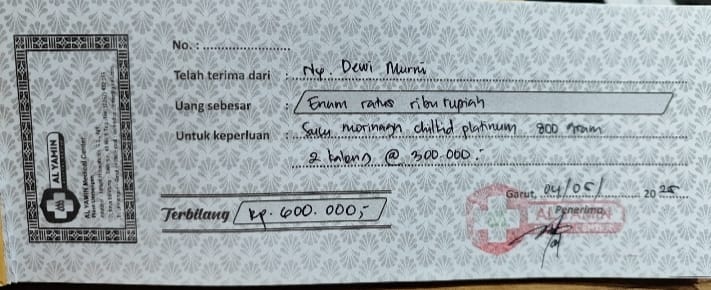 No. : ........................
Telah terima dari : Ny. Dewi Murni
Uang sebesar : Enam ratus ribu rupiah
Untuk keperluan : Susu morinaga chilkid platinum 800 gram
2 kaleng @ 300.000.-
Garut, 04/05/ 2025
Terbilang Rp. 600.000,-
Penerima,
AL YAMIN
AL YAMIN Medical Center